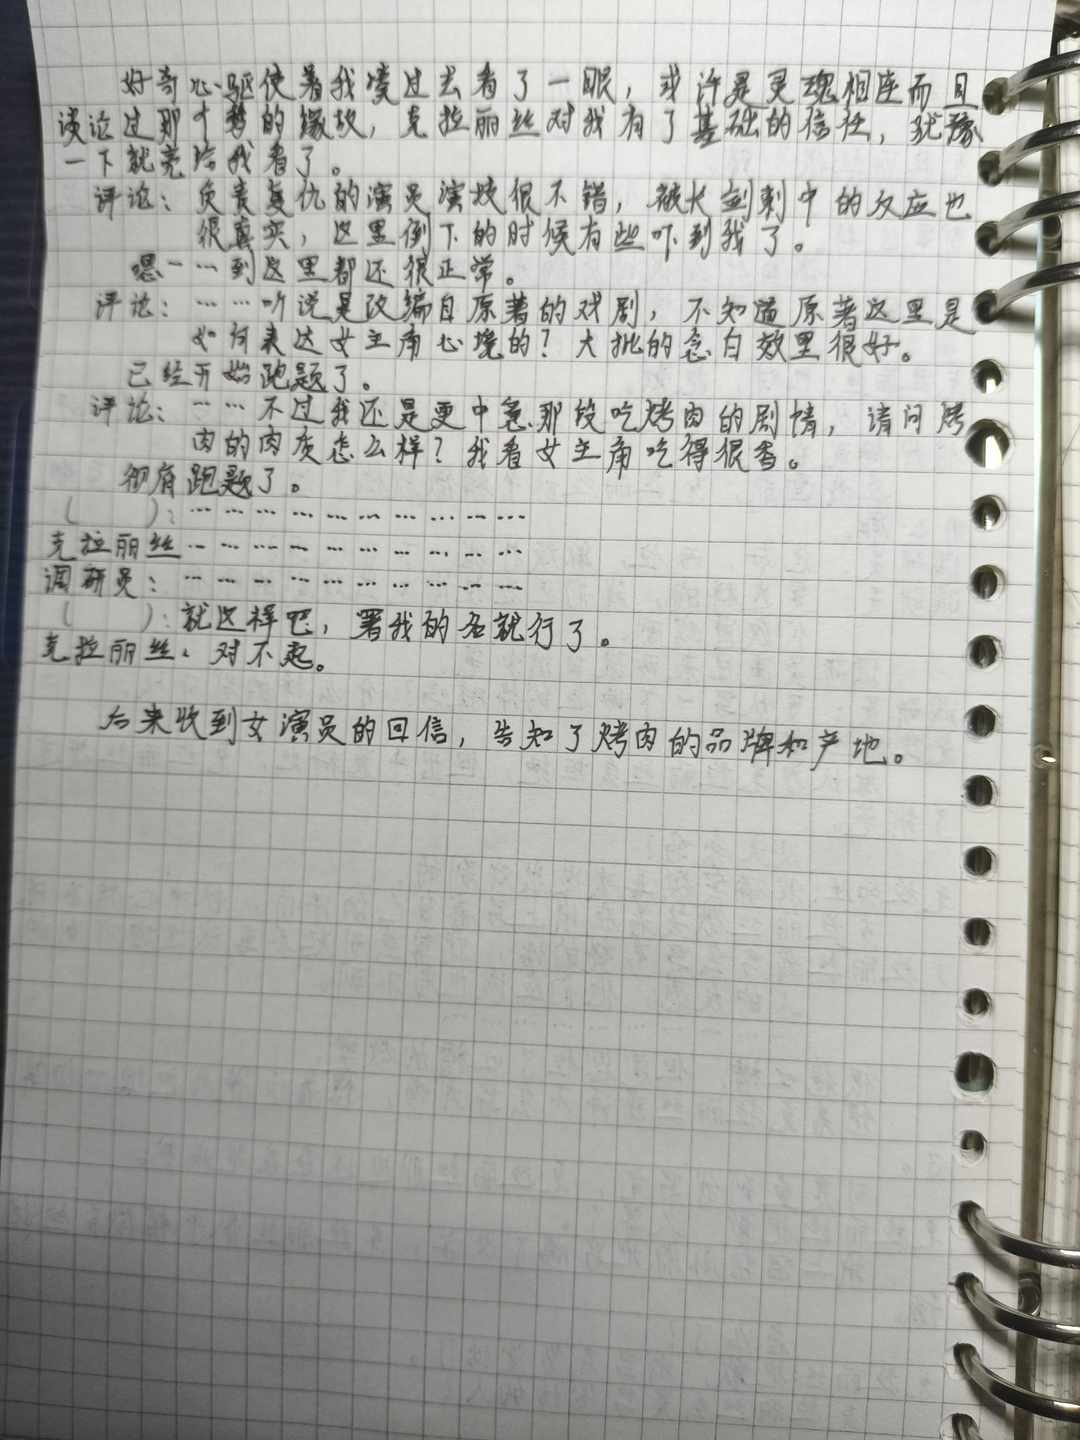 好奇心驱使着我凑过去看了一眼，或许是灵魂相连而且
谈论过那个梦的缘故，克拉丽丝对我有了基础的信任，犹豫
一下就亮给我看了。
评论：负责复仇的演员演技很不错，被长剑刺中的反应也
很真实，这里倒下的时候有些吓到我了。
嗯……到这里都还很正常。
评论：……听说是改编自原著的戏剧，不知道原著这里是
如何表达女主角心境的？大批的念白效果很好。
已经开始跑题了。
评论：……不过我还是更中意那段吃烤肉的剧情，请问烤
肉的肉质怎么样？我看女主角吃得很香。
彻底跑题了。
（　　）：………………………………
克拉丽丝………………………………
调研员：………………………………
（　　）：就这样吧，署我的名就行了。
克拉丽丝：对不起。
后来收到女演员的回信，告知了烤肉的品牌和产地。